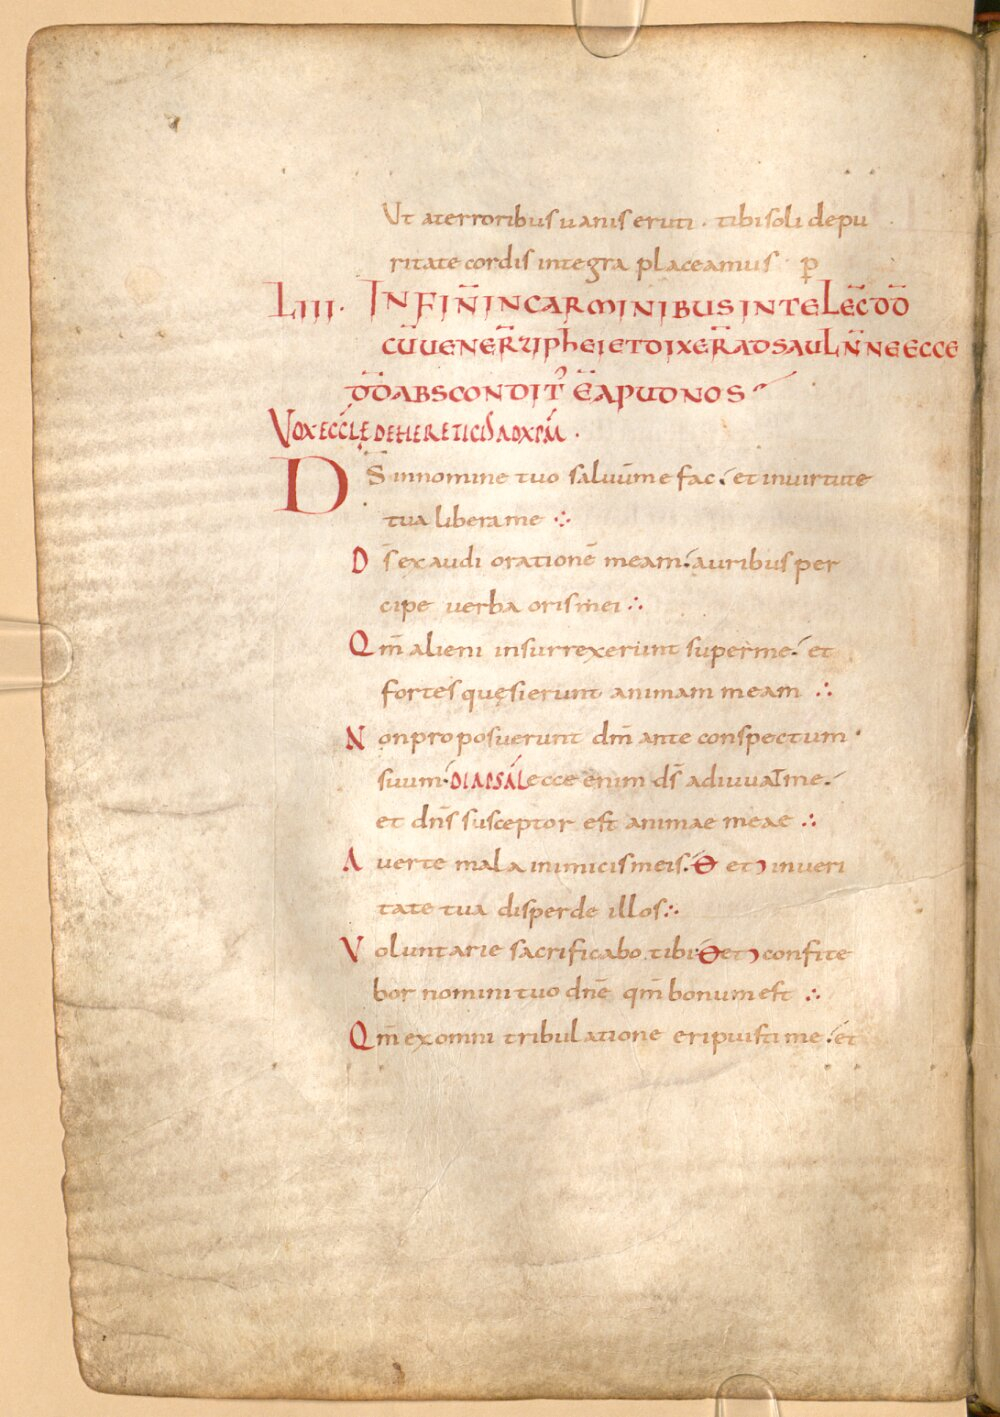 Ut aterroribus uanis eruti · tibi soli depu
ritate cordis integra placeamus · ꝑ
LIII · IN FIÑ IN CARMINIBUS INTELLEC̄ D̄D
CŪ UENER̄ ZIPHEI ET DIXER̄ AD SAUL N̄NE ECCE
D̄D ABSCONDIT᾿ Ē APUD NOS
VOX ECCLĘ DE HERETICIS AD XP̄M ·
DS̄ in nomine tuo saluū me fac ⁏ et in uirtute
tua libera me ∴
Ds̄ exaudi orationē meam ⁏ auribus per
cipe uerba oris mei ∴
Qm̄ alieni insurrexerunt super me ⁏ et
fortes quęsierunt animam meam ∴
Non proposuerunt dm̄ ante conspectum
suum · DIAPSAL̄ ecce enim ds̄ adiuuat me ⁏
et dns̄ susceptor est animae meae ∴
Auerte mala inimicis meis ⁏ ꝋ et ͻ in ueri
tate tua disperde illos ∴
Voluntarie sacrificabo tibi ⁏ ꝋ et ͻ confite
bor nomini tuo dnē qm̄ bonum est ∴
Qm̄ ex omni tribulatione eripuisti me ⁏ et